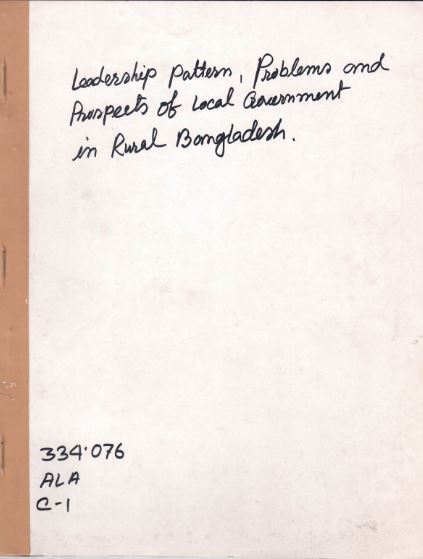 Leadership Pattern, Problems and
Prospects of Local Government
in Rural Bangladesh.
334.076
ALA
C-1